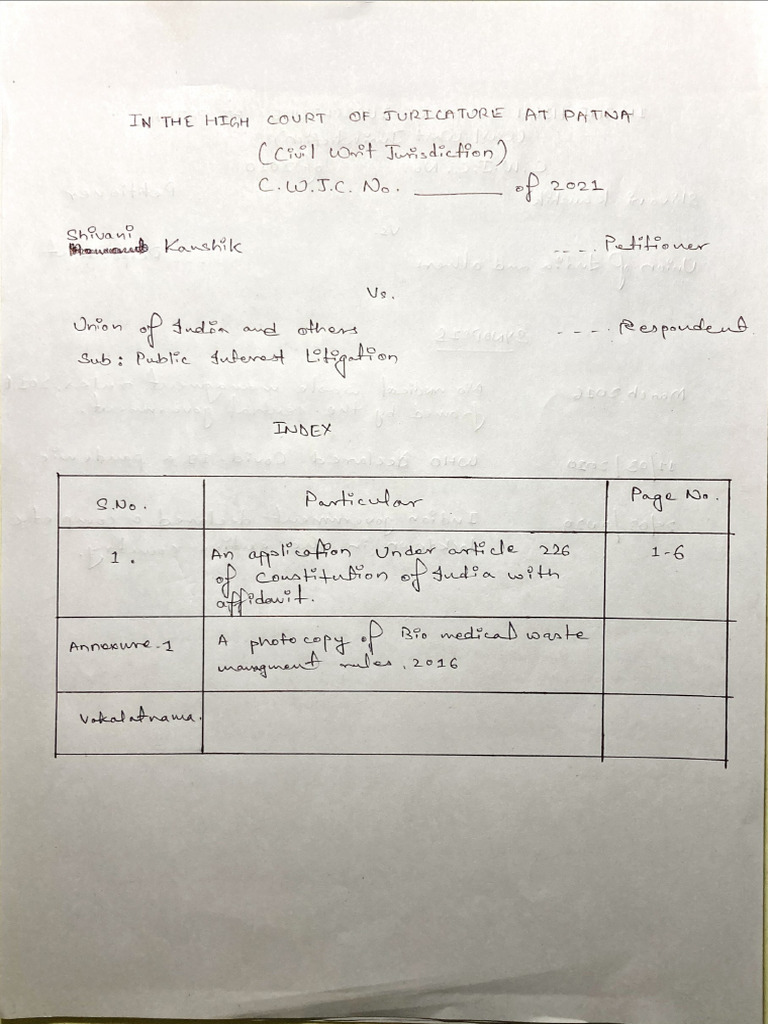 IN THE HIGH COURT OF JURICATURE AT PATNA
(Civil Writ Jurisdiction)
C.W.J.C. No. ________ of 2021
Shivani
Kaushik ---- Petitioner
Vs.
Union of India and others ---- Respondent
Sub: Public Interest Litigation
INDEX
S.No. Particular Page No.
1. An application Under article 226 1-6
of Constitution of India with
affidavit.
Annexure-1 A photocopy of Bio medical waste
managment rules, 2016
Vakalatnama.